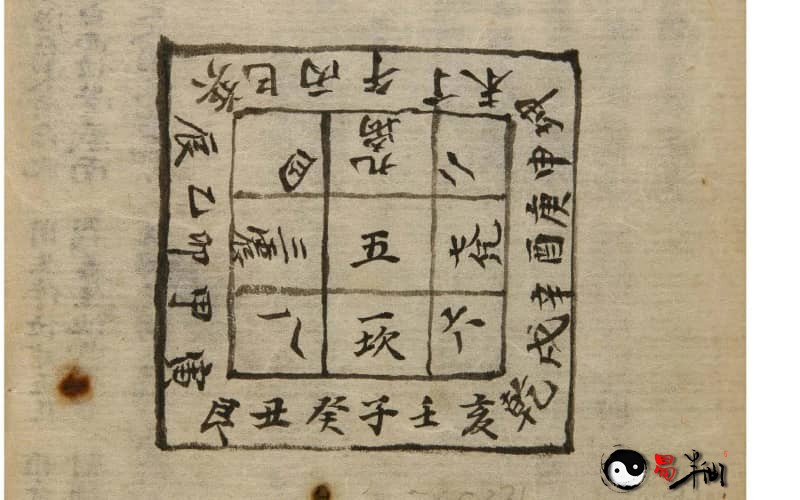 巽 巳 丙 午 丁 未 坤
申 庚 酉 辛 戌 乾
辰 乙 卯 甲 寅
艮 丑 癸 子 壬 亥
四 九离 二
三震 五 七兌
八 一坎 六
易半仙